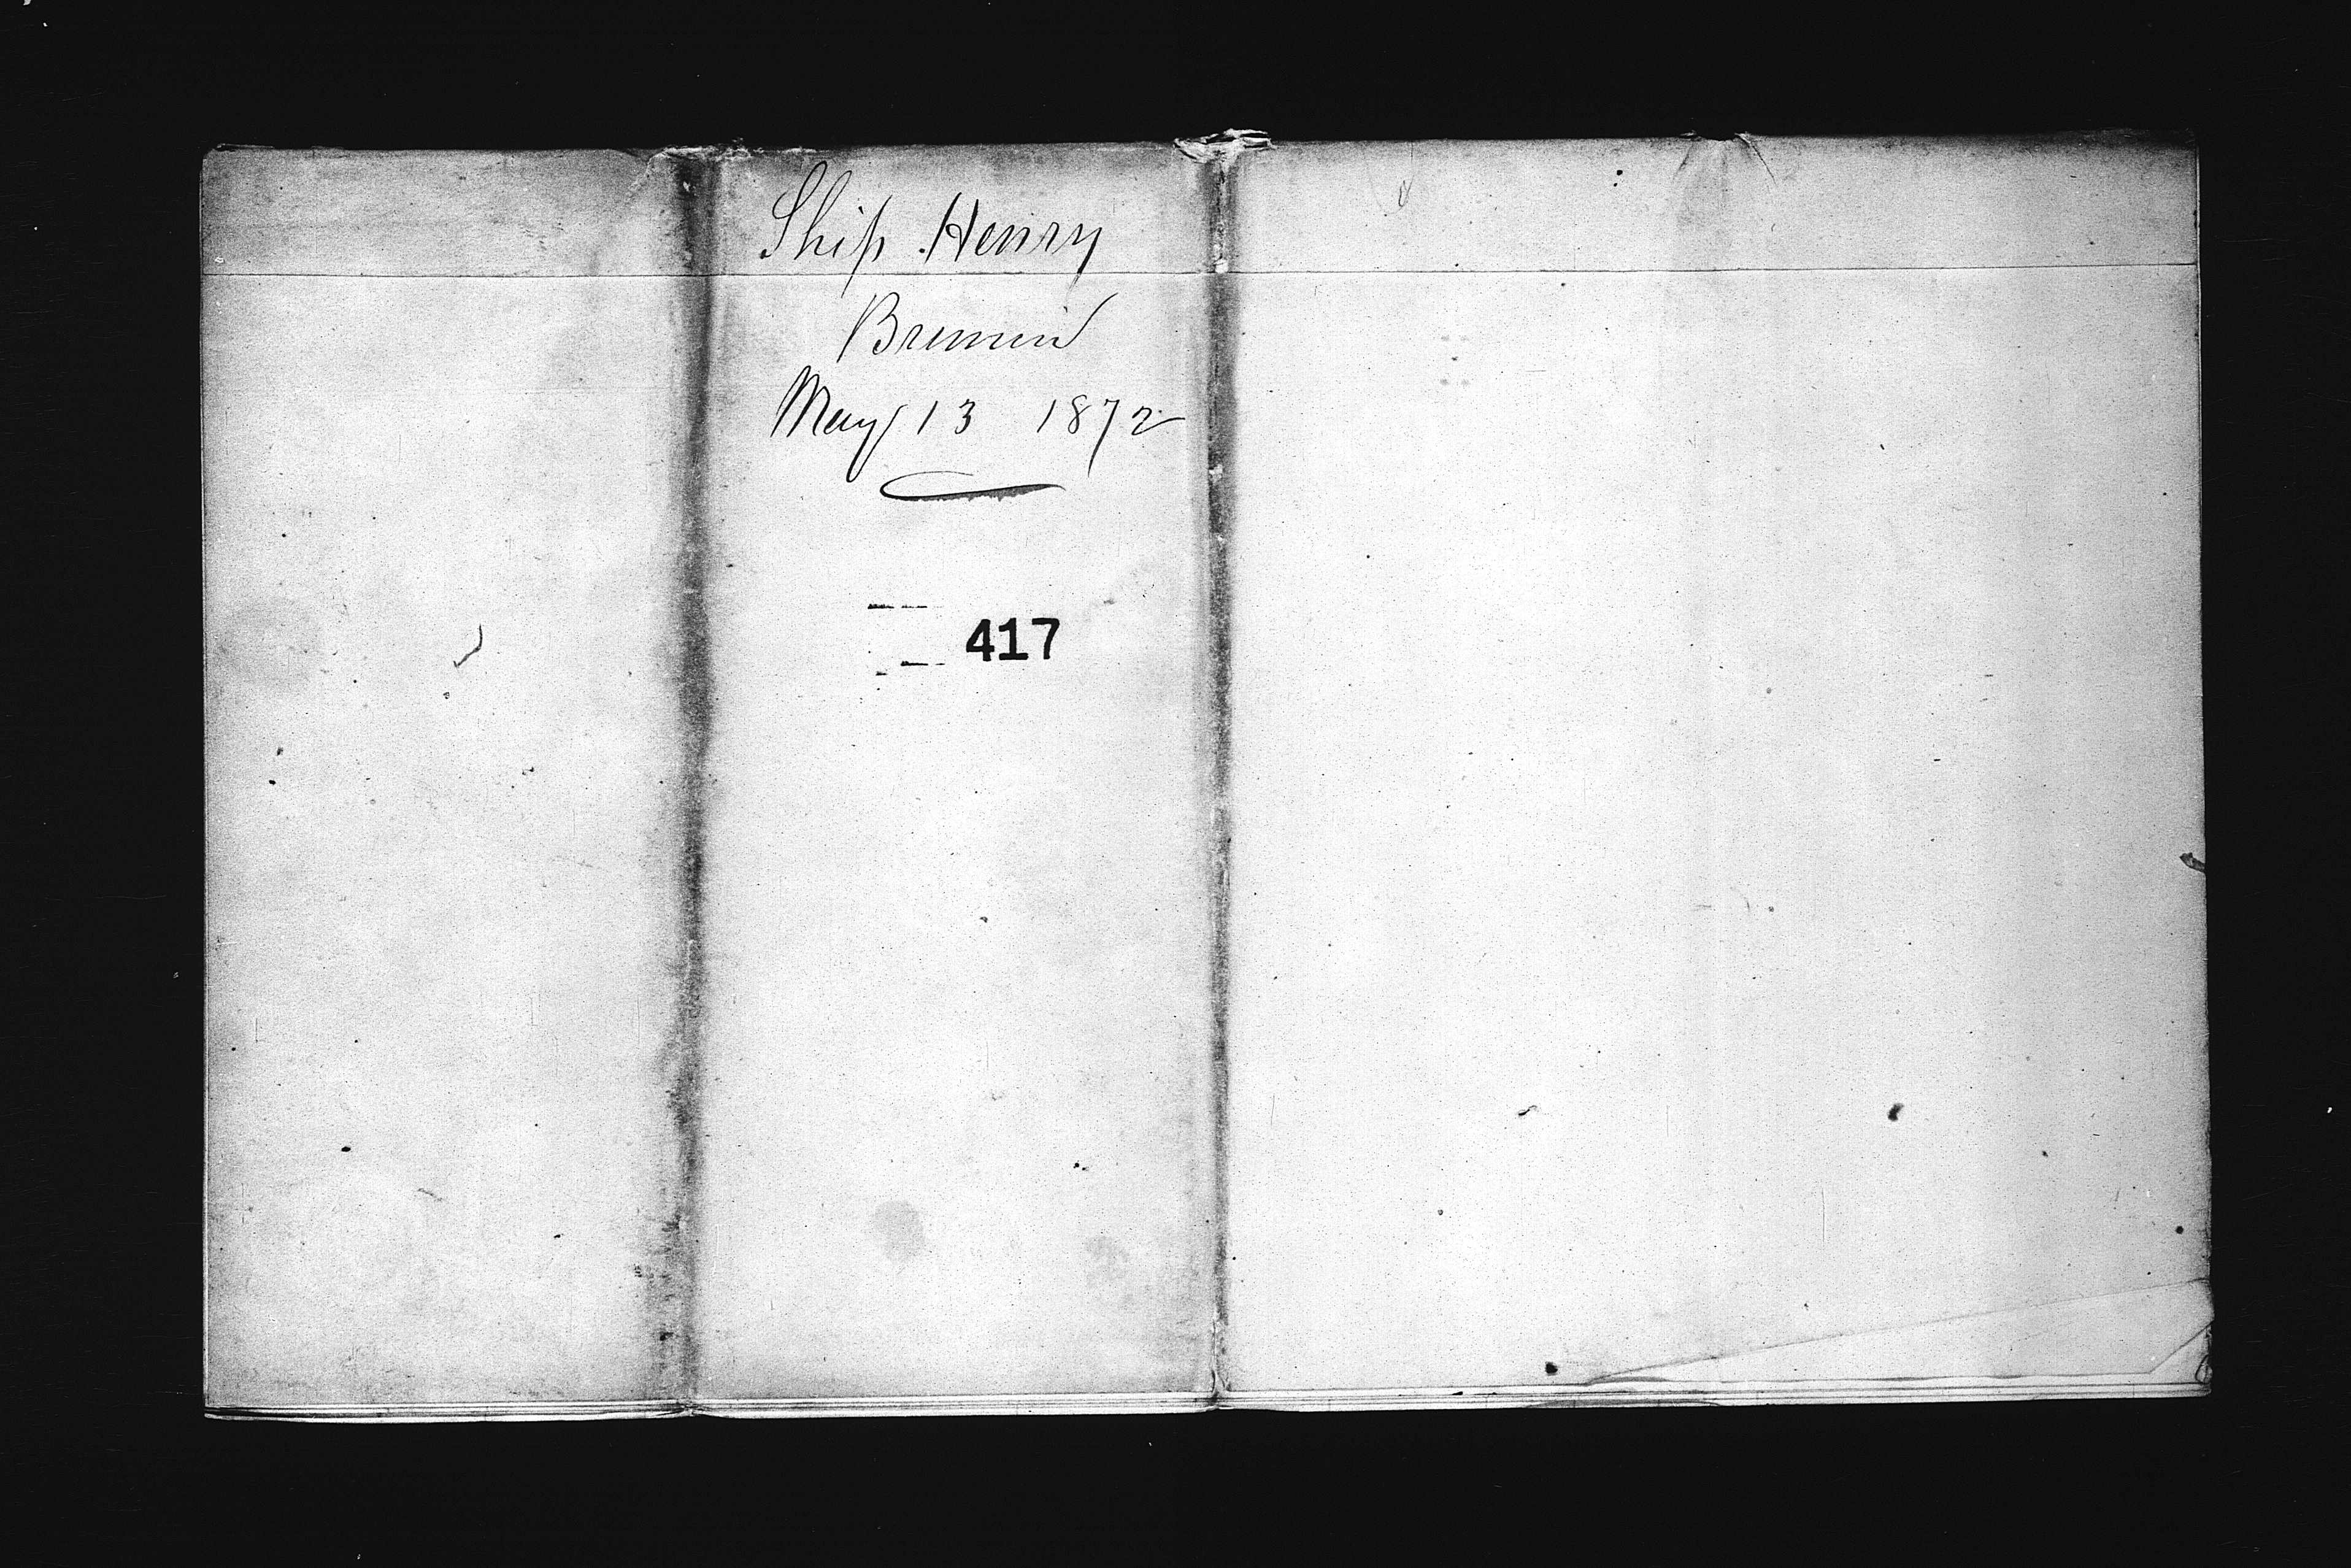 Ship Henry
Bremen
May 13 1872
417